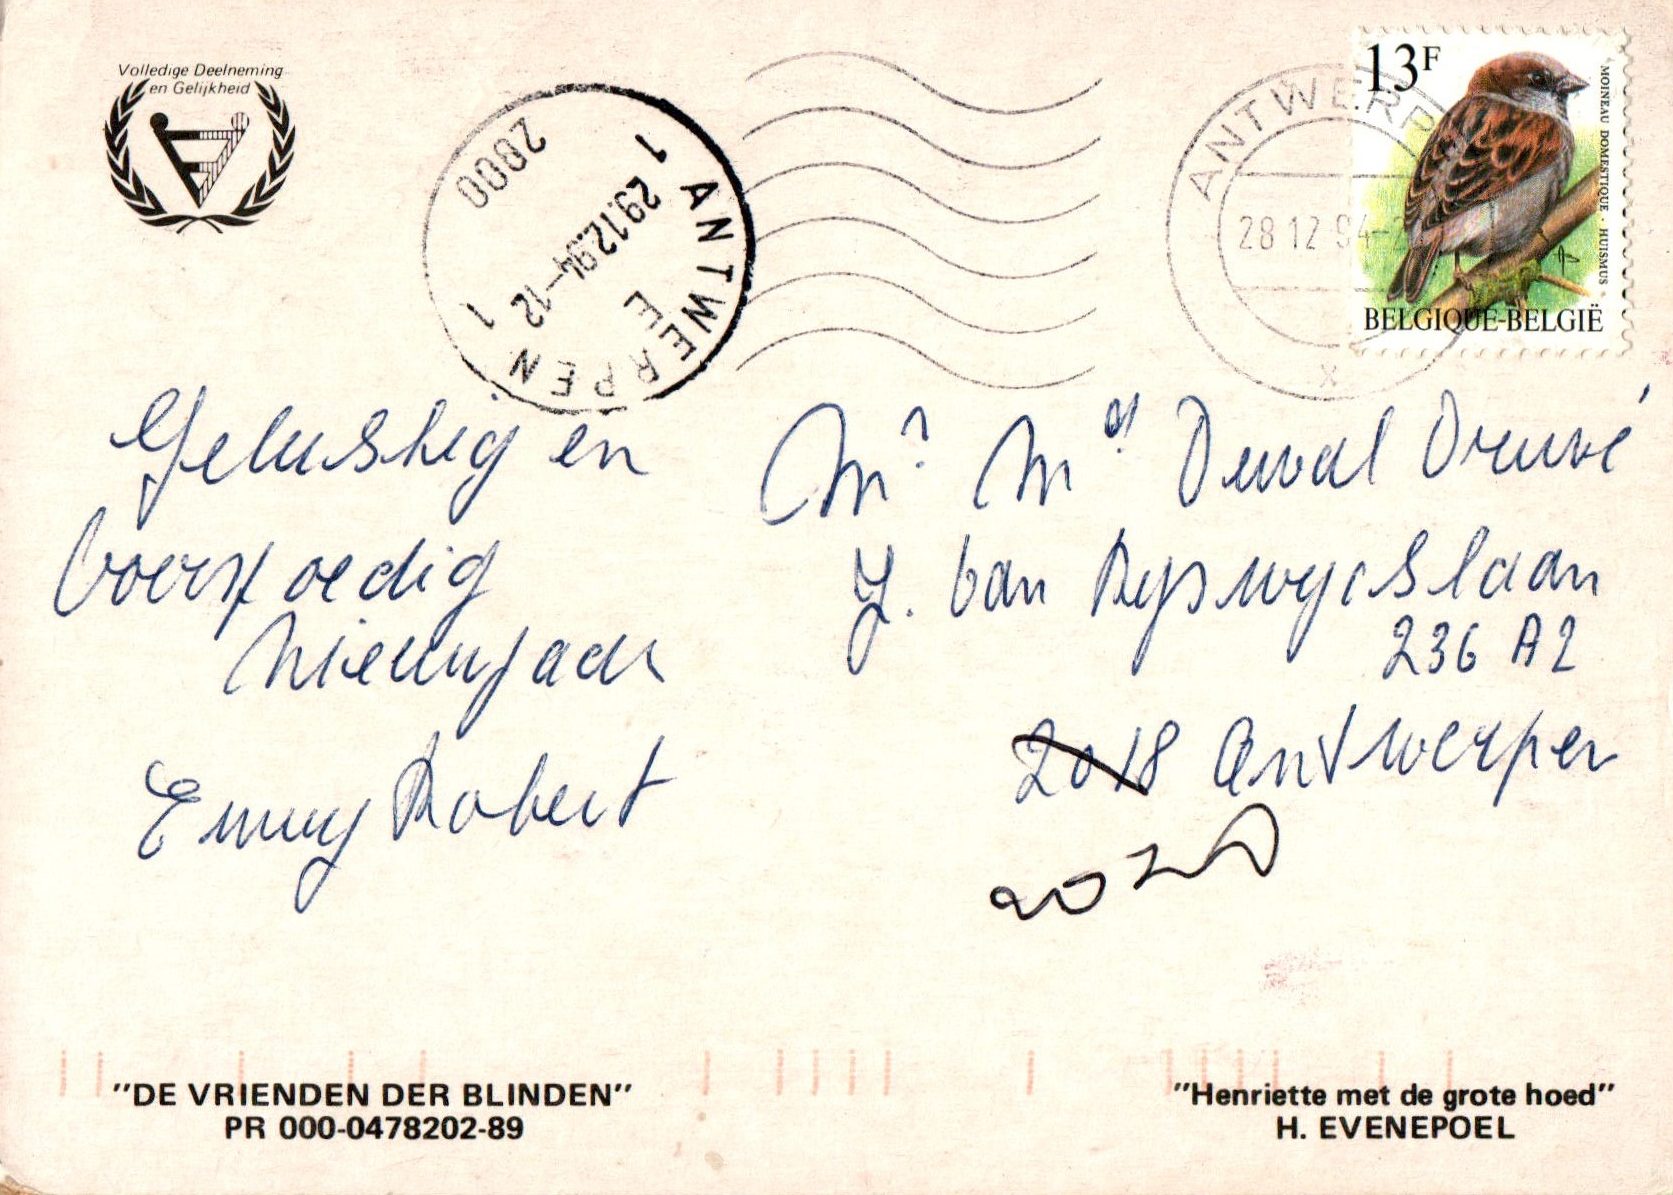 Volledige Deelneming
en Gelijkheid
2000
1 ANTWERPEN 1
29.12.94-12
E
ANTWERP
28 12 94-2
X
13F
MOINEAU DOMESTIQUE · HUISMUS
BELGIQUE-BELGIË
Gelukkig en
Voorspoedig
Nieuwjaar
Emmy Robert
Mr. Md Duval Druwé
J. Van Ryswycklaan
236 A2
2018 Antwerpen
2020
"DE VRIENDEN DER BLINDEN"
PR 000-0478202-89
"Henriette met de grote hoed"
H. EVENEPOEL